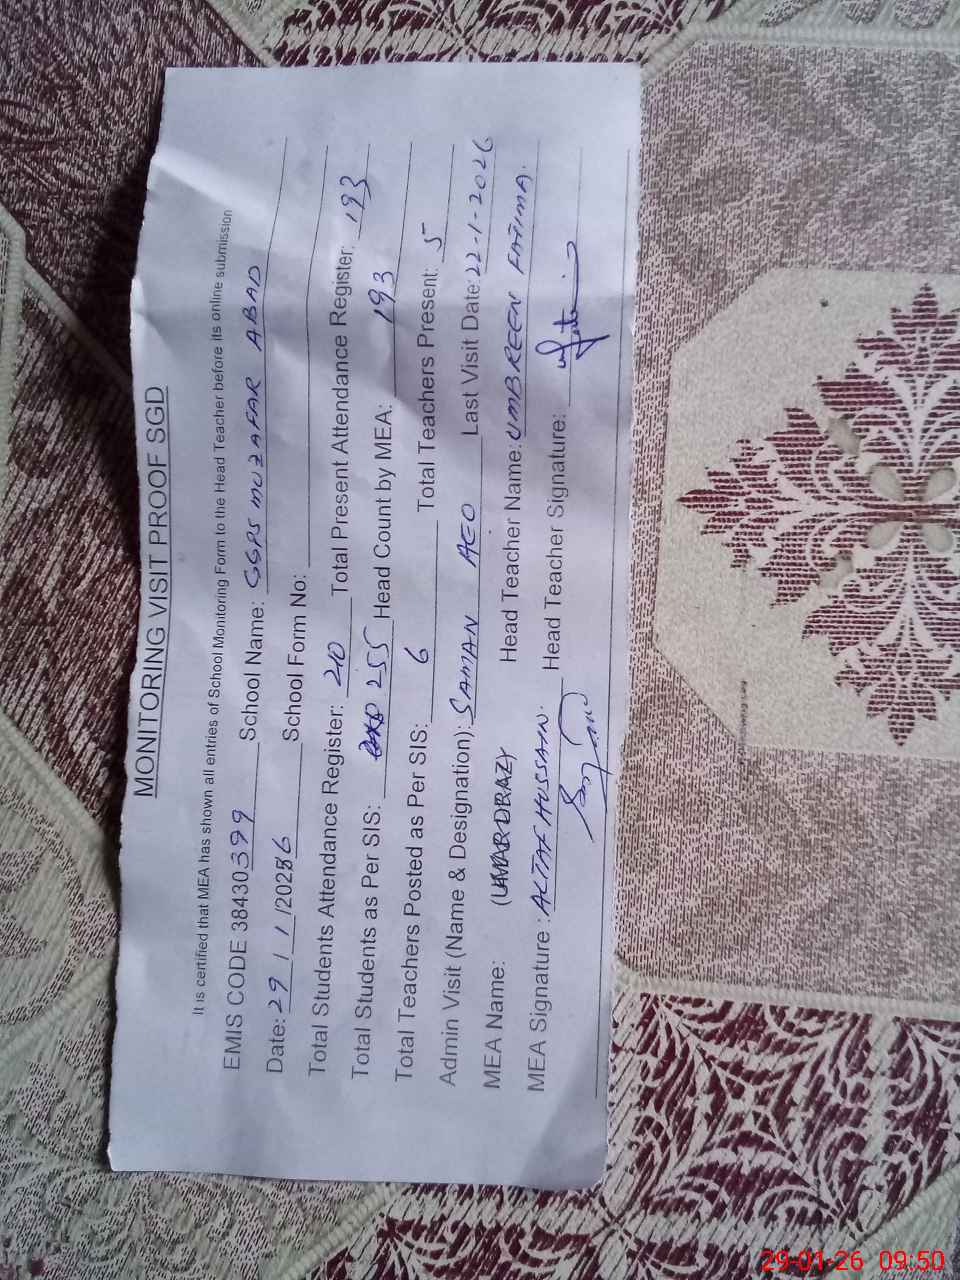 MONITORING VISIT PROOF SGD
It is certified that MEA has shown all entries of School Monitoring Form to the Head Teacher before its online submission
EMIS CODE 38430399 School Name: GGPS MUZAFAR ABAD
Date: 29/1/2026 School Form No:
Total Students Attendance Register: 210 Total Present Attendance Register: 193
Total Students as Per SIS: 255 Head Count by MEA: 193
Total Teachers Posted as Per SIS: 6 Total Teachers Present: 5
Admin Visit (Name & Designation): SAMAN AEO Last Visit Date: 22-1-2026
MEA Name: (UMAR DRAZ) Head Teacher Name: UMBREEN FATIMA.
MEA Signature: ALTAF HUSSAIN. Head Teacher Signature:
29-01-26 09:50